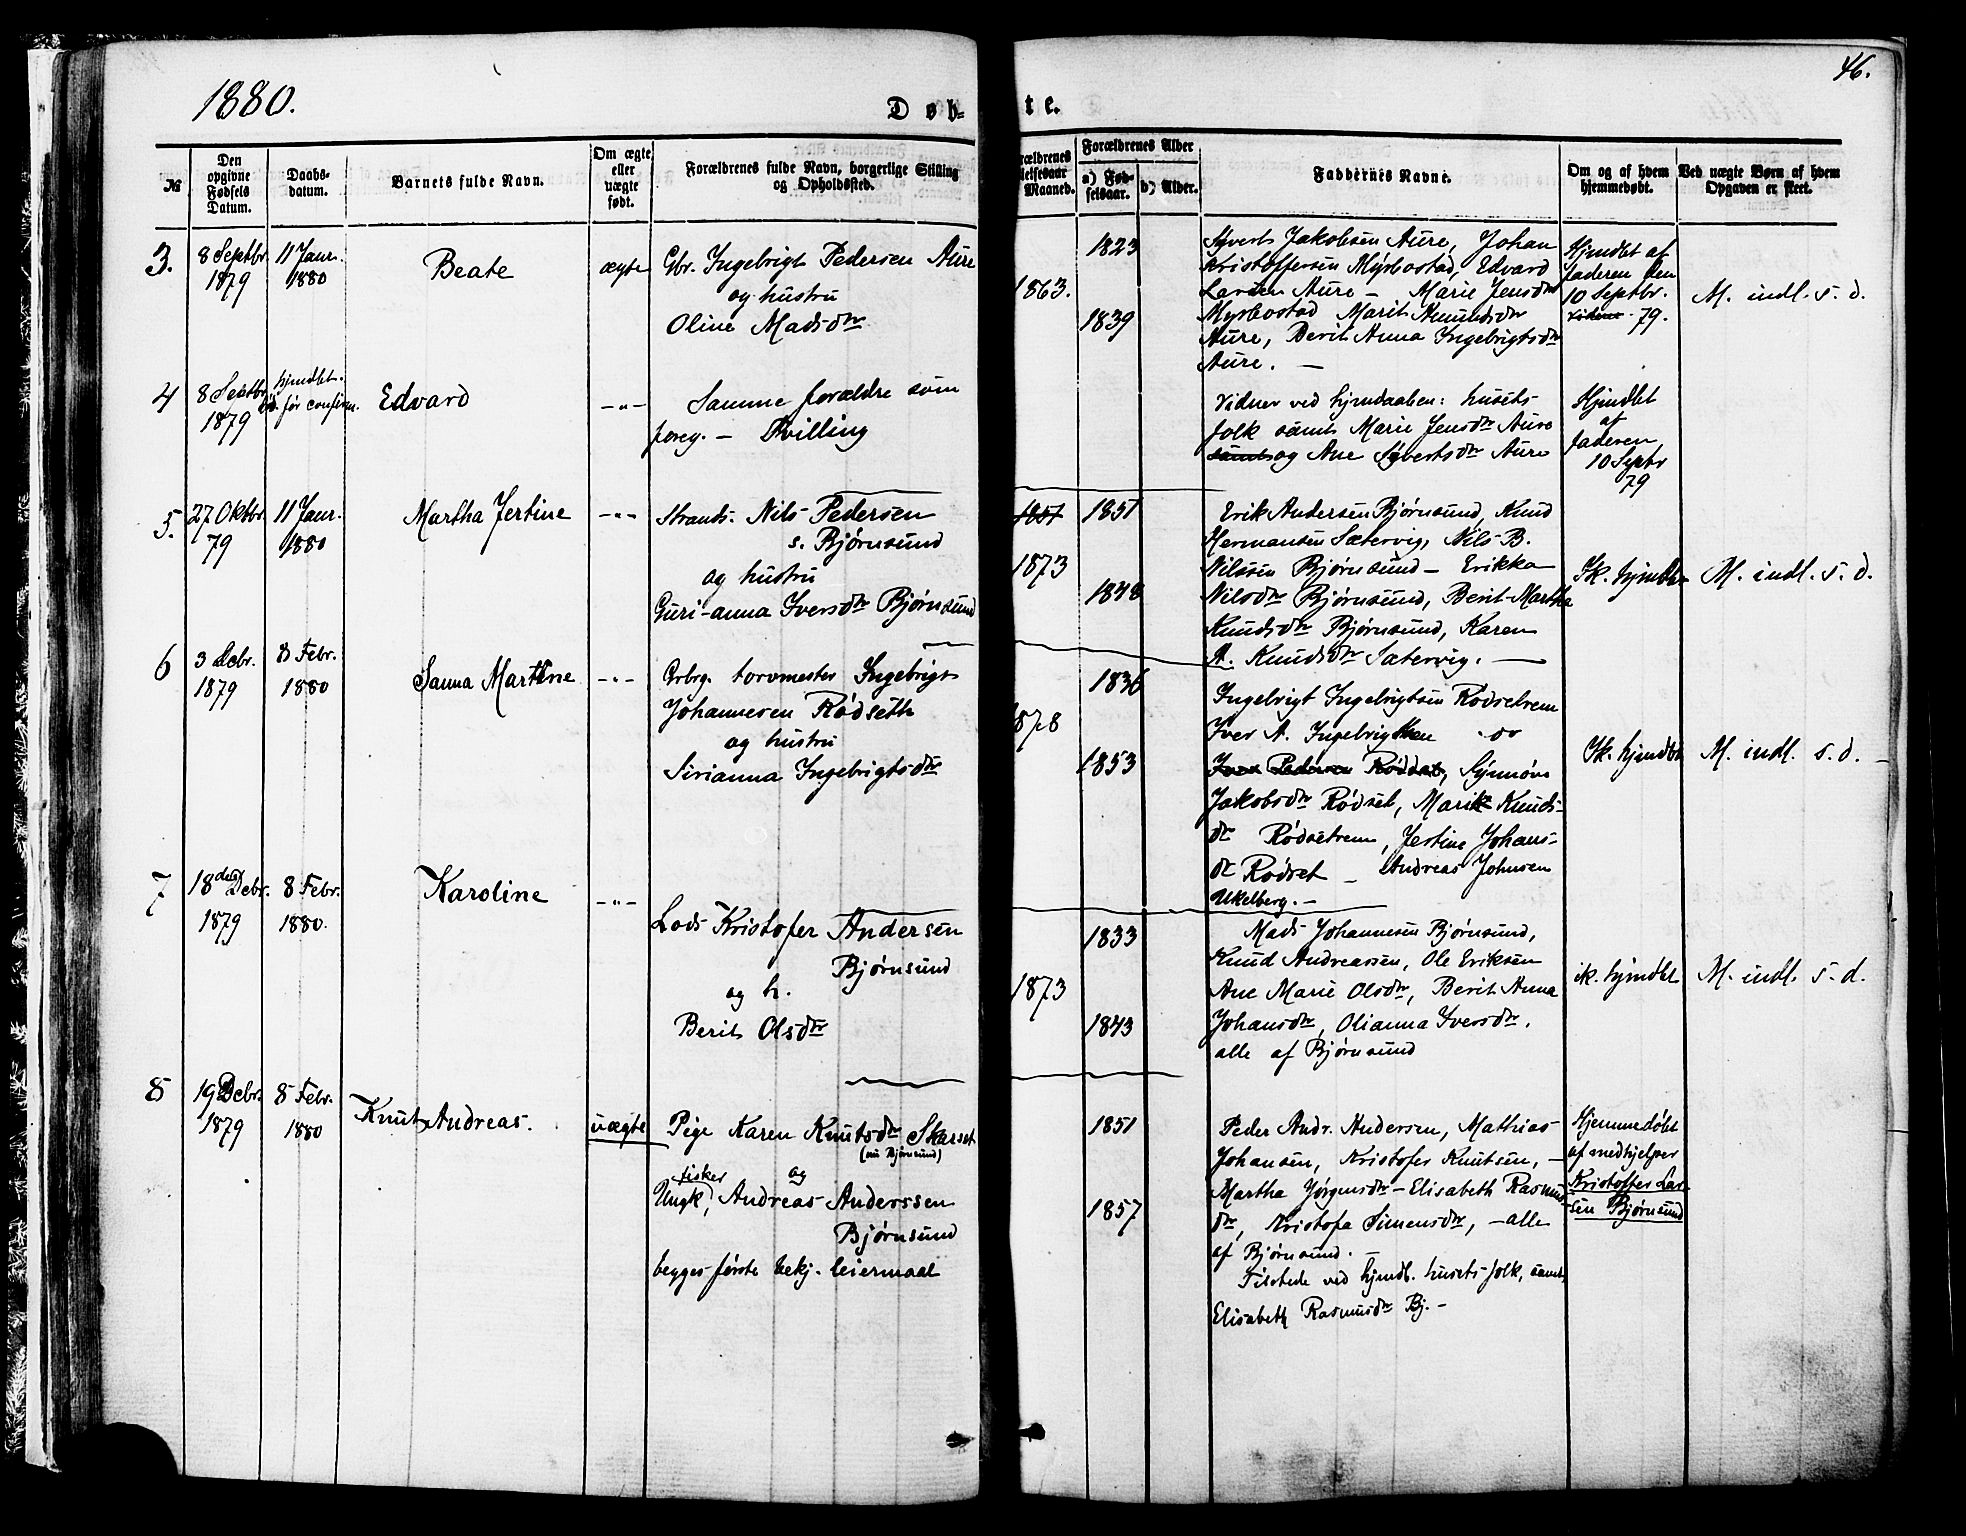 1880.
46.
Døb-
te.
No
Den opgivne Fødsels Datum.
Daabs-datum.
Barnets fulde Navn.
Om ægte eller uægte født.
Forældrenes fulde Navn, borgerlige Stilling og Opholdssted.
Forældrenes Alder
a) Fødselsaar.
b) Alder.
Faddernes Navne.
Om og af hvem hjemmedøbt.
Ved uægte Børn af hvem Opgaven er skeet.
3.
8 Septbr. 1879
11 Janr. 1880
Beate
ægte
Gbr. Ingebrigt Pedersen Aure
og hustru
Oline Madsdtr
1863.
1823
1839
Syvert Jakobsen Aure, Johan
Kristoffersen Myrbostad, Edvard
Larsen Aure - Marie Jensdtr
Myrbostad Marit Knudsdtr
Aure, Berit Anna Ingebrigtsdtr
Aure. -
Hjmdbt af
faderen den
10 Septbr.
79.
M. indl. s. d.
4
8 Septbr 1879
hjmdbt.
før confirm.
Edvard
-"-
Samme forældre som
foreg. - Tvilling
Vidner ved hjmdaaben: husets-
folk samt Marie Jensdtr Aure
samt og Ane Syvertsdtr Aure
Hjmdbt
af
faderen
10 Septbr
79
5.
27 Oktbr. 79
11 Janr. 1880
Martha Jertine
-"-
Strands. Nils Pedersen
s. Bjørnsund
og hustru
Guri-anna Iversdtr Bjørnsund
1851
1873
1851
1848
Erik Andersen Bjørnsund, Knud
Hermansen Sætervig, Nils B.
Nilssen Bjørnsund - Erikka
Nilsdtr Bjørnsund, Berit-Martha
Knudsdtr Bjørnsund, Karen
A. Knudsdtr Sætervig. -
Ik. hjmdbt
M. indl. s. d.
6
3 Debr. 1879
8 Febr. 1880
Sanna Martine
-"-
Grbrg. torvmester Ingebrigt
Johannesen Rødseth
og hustru
Sirianna Ingebrigtsdtr
1878
1836
1853
Ingebrigt Ingebrigtsen Rødsetrem
Iver A. Ingebrigtsen
Iver Pedersen Rødset, Synnøve
Jakobsdtr Rødset, Marit Knuds-
dtr Rødsetrem, Jertine Johans-
dtr Rødset - Andreas Johnsen
Ukelberg. -
Ik. hjmdbt
M. indl. s. d. -
7
18 Debr. 1879
8 Febr. 1880.
Karoline
-"-
Lods Kristofer Andersen
Bjørnsund
og h.
Berit Olsdtr
1873
1833
1843
Mads Johannesen Bjørnsund,
Knud Andreassen, Ole Eriksen
Ane Marie Olsdtr, Berit Anna
Johansdtr, Olianna Iversdtr.
alle af Bjørnsund
ik. hjmdbt
M. indl. s. d.
8
19 Debr. 1879
8 Febr. 1880
Knut Andreas.
uægte
Pige Karen Knutsdtr Skarset
(nu Bjørnsund)
fisker og
Ungk, Andreas Anderssen
Bjørnsund
begges første bekj. leiermaal
1851
1857
Peder Andr. Andersen, Mathias
Johansen, Kristofer Knutsen, -
Martha Jørgensdtr - Elisabeth Rasmus-
dtr, Kristofa Simensdtr, - alle
af Bjørnsund. -
Tilstede ved hjmdb. husets folk, samt
Elisabeth Rasmusdtr Bj. -
Hjemmedøbt
af medhjelper
Kristoffer Lar-
sen Bjørnsund